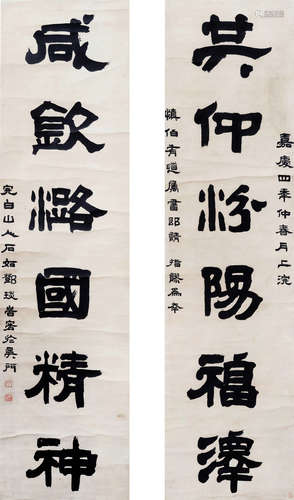 嘉慶四年仲喜月上浣
共仲汾陽福澤
慎伯有道屬書即請 指謬為幸
咸欽潞國精神
完白山人石如鄧琰書客於吳門